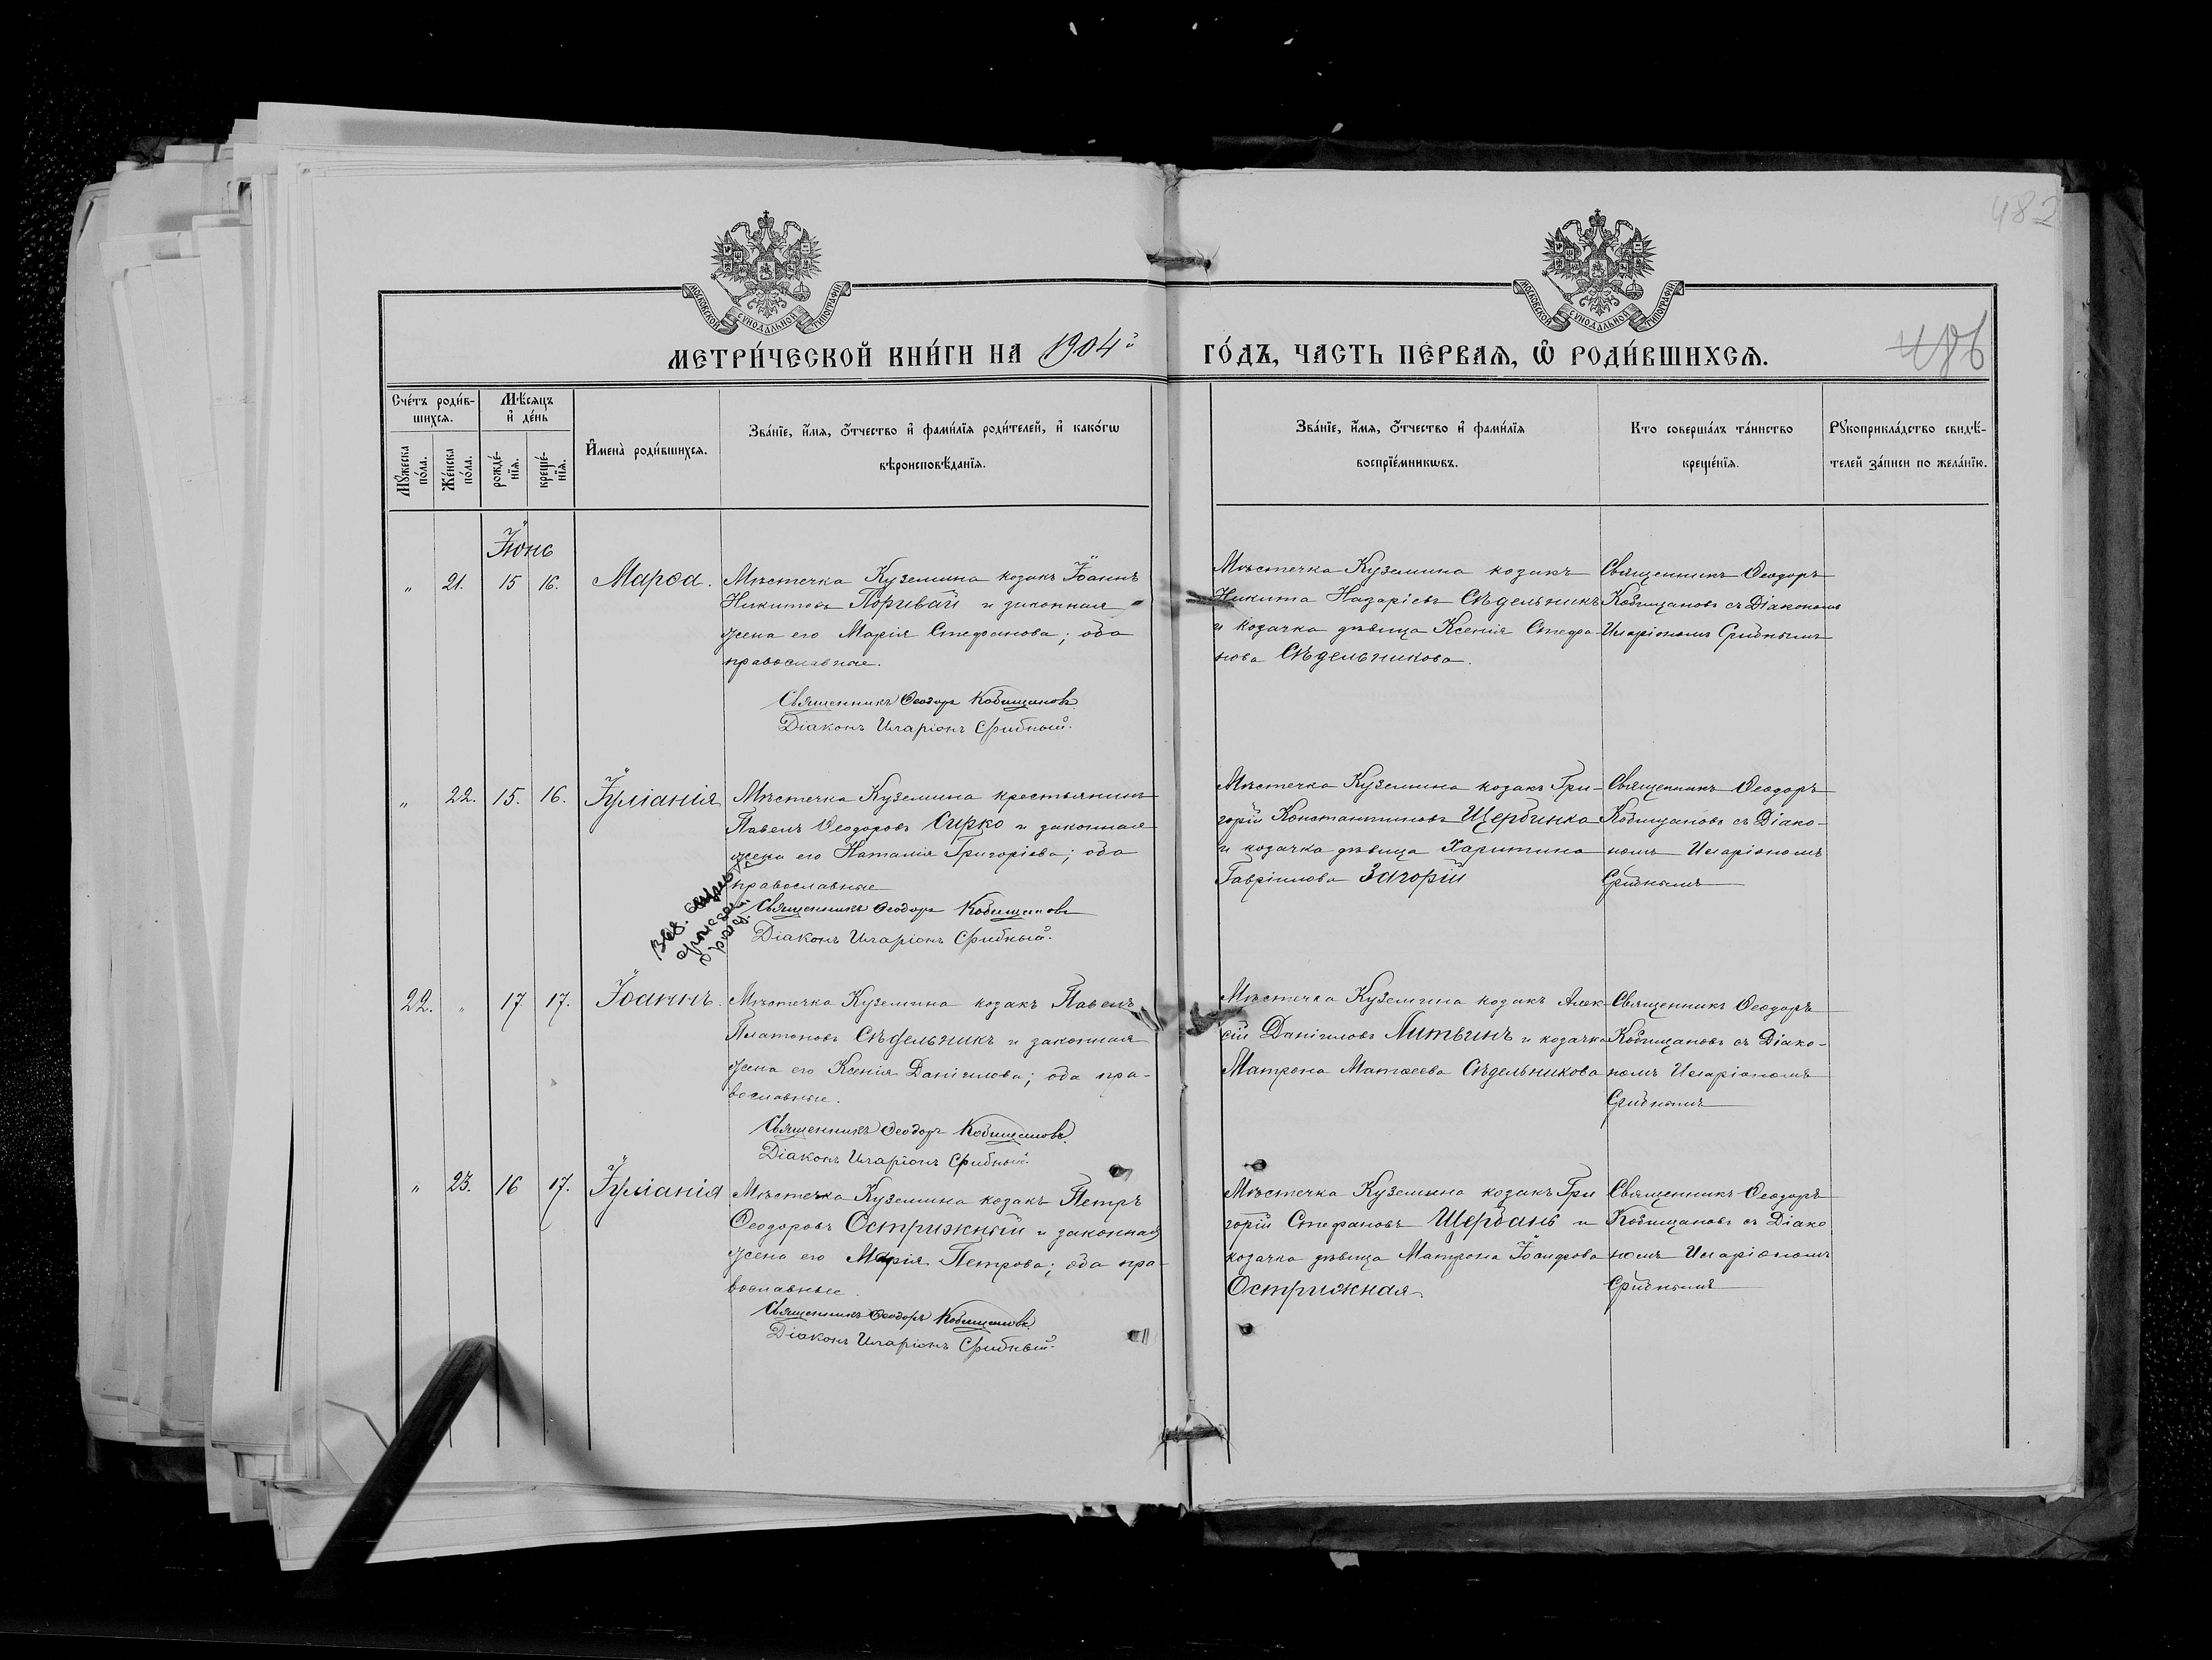 482
МОСКОВСКОЙ СѴНОДАЛЬНОЙ ТИПОГРАФІИ
МОСКОВСКОЙ СѴНОДАЛЬНОЙ ТИПОГРАФІИ
МЕТРИ́ЧЕСКОЙ КНИ́ГИ НА 1904й ГО́ДЪ, ЧАСТЬ ПЕ́РВАѦ, Ѡ҆ РОДИ́ВШИХСѦ.
486
Сче́тъ роди́в-
шихсѧ.
Мѣ́сѧцъ
и҆ де́нь
Мꙋ́жеска
по́ла.
Же́нска
по́ла.
рожде́-
нїѧ.
креще́-
нїѧ.
И҆мена̀ роди́вшихсѧ.
Зва́нїе, и҆́мѧ, ѻ҆́тчество и҆ фами́лїѧ роди́телей, и҆ како́гѡ
вѣроисповѣ́данїѧ.
Зва́нїе, и҆́мѧ, ѻ҆́тчество и҆ фами́лїѧ
воспрїе́мникѡвъ.
Кто̀ соверша́лъ та́инство
креще́нїѧ.
Рꙋкоприкла́дство свидѣ́-
телей за́писи по жела́нїю.
Іюнь
" 21. 15 16. Марѳа.
Мѣстечка Куземина козакъ Іоаннъ
Никитовъ Поривай и законная
жена его Марія Стефанова; оба
православные.
Священникъ Ѳеодоръ Кобищановъ
Діаконъ Иларіонъ Срибный.
Мѣстечка Куземина козакъ
Никита Назаріевъ Сѣдельникъ
и козачка дѣвица Ксенія Стефа-
нова Сѣдельникова.
Священникъ Ѳеодоръ
Кобищановъ съ Діакономъ
Иларіономъ Срибнымъ
" 22. 15. 16. Іуліанія
Мѣстечка Куземина крестьянинъ
Павелъ Ѳеодоровъ Сирко и законная
жена его Наталія Григоріева; оба
православные
Священникъ Ѳеодоръ Кобищановъ
Діаконъ Иларіонъ Срибный.
Мѣстечка Куземина козакъ Гри-
горій Константиновъ Щербинка
и козачка дѣвица Харитина
Гавріилова Загорій
Священникъ Ѳеодоръ
Кобищановъ съ Діако-
номъ Иларіономъ
Срибнымъ
22. " 17 17. Іоаннъ.
Мѣстечка Куземина козакъ Павелъ
Платоновъ Сѣдельникъ и законная
жена его Ксенія Даніилова; оба пра-
вославные.
Священникъ Ѳеодоръ Кобищановъ
Діаконъ Иларіонъ Срибный.
Мѣстечка Куземина козакъ Алек-
сій Даніиловъ Литвинъ и козачка
Матрона Матѳеева Сѣдельникова
Священникъ Ѳеодоръ
Кобищановъ съ Діако-
номъ Иларіономъ
Срибнымъ
" 23. 16 17. Іуліанія
Мѣстечка Куземина козакъ Петръ
Ѳеодоровъ Острижный и законная
жена его Марія Петрова; оба пра-
вославные.
Священникъ Ѳеодоръ Кобищановъ
Діаконъ Иларіонъ Срибный.
Мѣстечка Куземина козакъ Гри
горій Стефановъ Щербань и
козачка дѣвица Матрона
Острижная.
Священникъ Ѳеодоръ
Кобищановъ съ Діако
номъ Иларіономъ
Срибнымъ